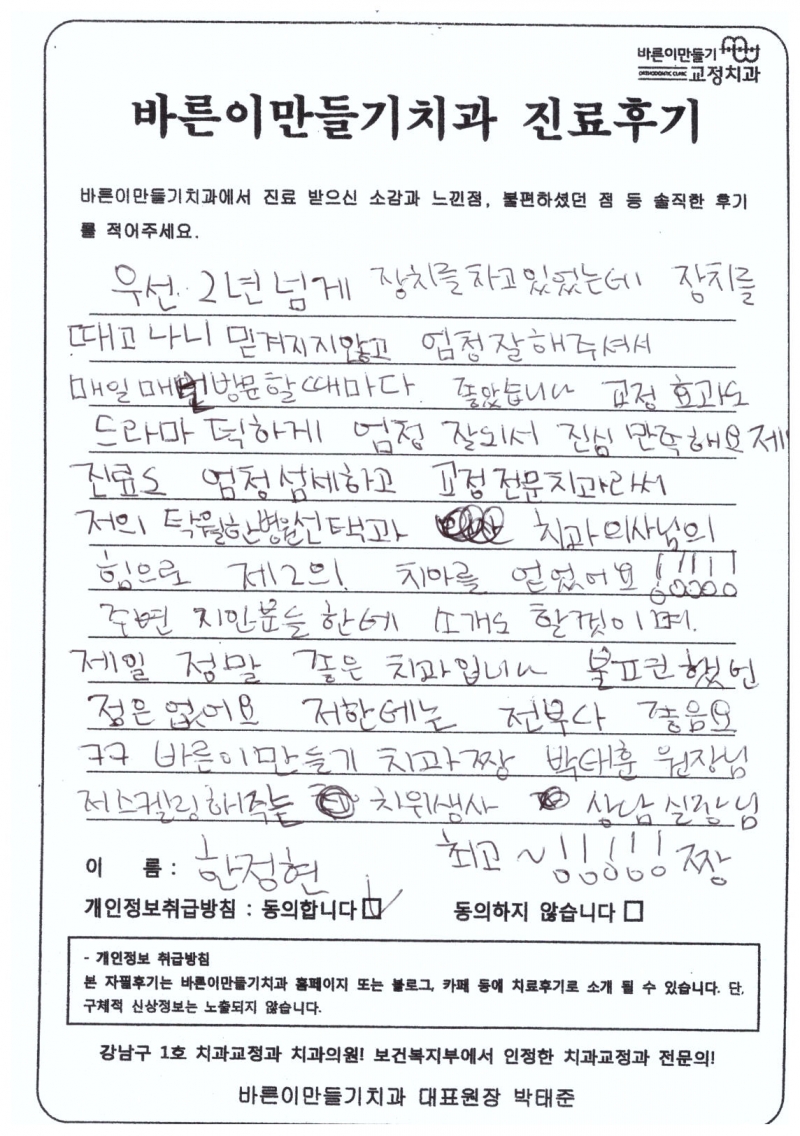 바른이만들기
ORTHODONTIC CLINIC 교정치과
바른이만들기치과 진료후기
바른이만들기치과에서 진료 받으신 소감과 느낀점, 불편하셨던 점 등 솔직한 후기
를 적어주세요.
우선. 2년넘게 장치를차고있었는데 장치를
때고 나니 믿겨지지않고 엄청잘해주셔서
매일 매번방문할때마다. 좋았습니다 교정 효과도
드라마 틱하게 엄청 잘되서 진심 만족해요 제
진료도 엄청섬세하고 교정전문치과라써
저의 탁월한병원선택과 치과의사님의
힘으로 제2의! 치아를 얻었어요!!!!!!
주변 지인분들한테 소개도 할껏이며.
제일 정말 좋은 치과입니다 불표현했번
점은없어요 저한테는 전부다 좋음요
ㅋㅋ 바른이만들기 치과짱 박태훈 원장님
저스켈링해주는 치위생사 상담실장님
이 름 : 한정현 최고 ~!!!!!! 짱
개인정보취급방침 : 동의합니다 동의하지 않습니다
- 개인정보 취급방침
본 자필후기는 바른이만들기치과 홈페이지 또는 블로그, 카페 등에 치료후기로 소개 될 수 있습니다. 단,
구체적 신상정보는 노출되지 않습니다.
강남구 1호 치과교정과 치과의원! 보건복지부에서 인정한 치과교정과 전문의!
바른이만들기치과 대표원장 박태준